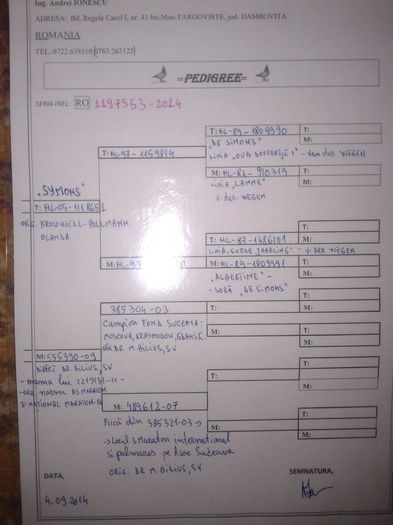 Ing. Andrei IONESCU
ADRESA: Bd. Regele Carol I, nr. 41 bis, Mun. TARGOVISTE, jud. DAMBOVITA
ROMANIA
TEL.:0722.639310;0763.263125
=PEDIGREE=
SERIA INEL: RO 1197553-2014
T: HL-89-1809990
T:
M:
"DE SIMONS"
LINIA "OUD DOFFERTJE" - Van der WEGEN
T: HL-97-1159814
M: HL-84-990319
T:
M:
LINIA "LAMME"
V. der. WEGEN
"SYMONS"
T: HL-05-1118651
ORIG. KROUWELL-POLLMANN
OLANDA
T: HL-87-1486101
T:
M:
LINIA GOEDE JAARLING - V. DER WEGEN
M: HL-97
M: HL-89-1809991
T:
M:
"ALBERTINE" -
- SORĂ "DE SIMONS"
385304-03
T:
T:
M:
Campion FOND SUCEAVA:
MOSCOVA, KRASNODON, GDANSK.
DR M. BILIUS, SV
M:
T:
M:
M: 555390-09
DIRECT DR. BILIUS, SV
- mama lui 2219131-11 -
AS MARATON
NATIONAL MARATON
T:
T:
M:
M: 489612-07
Fiică din 385321-03 →
→ Locul 3 Maraton international
5 palmares pe Asoc Suceava
ORIG. DR M. BILIUS, SV
M:
T:
M:
DATA,
SEMNATURA,
4.09.2014